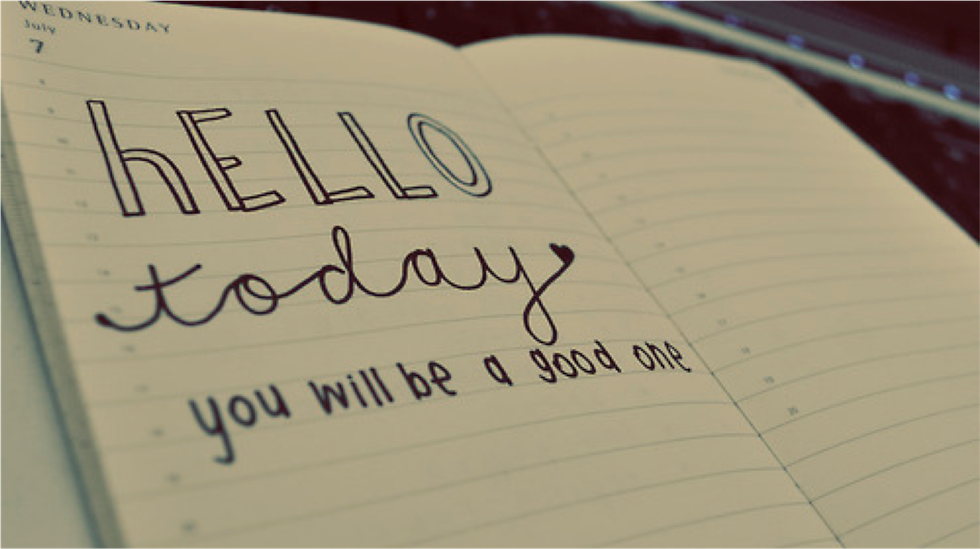 WEDNESDAY
July
7
hELLO
today
you will be a good one